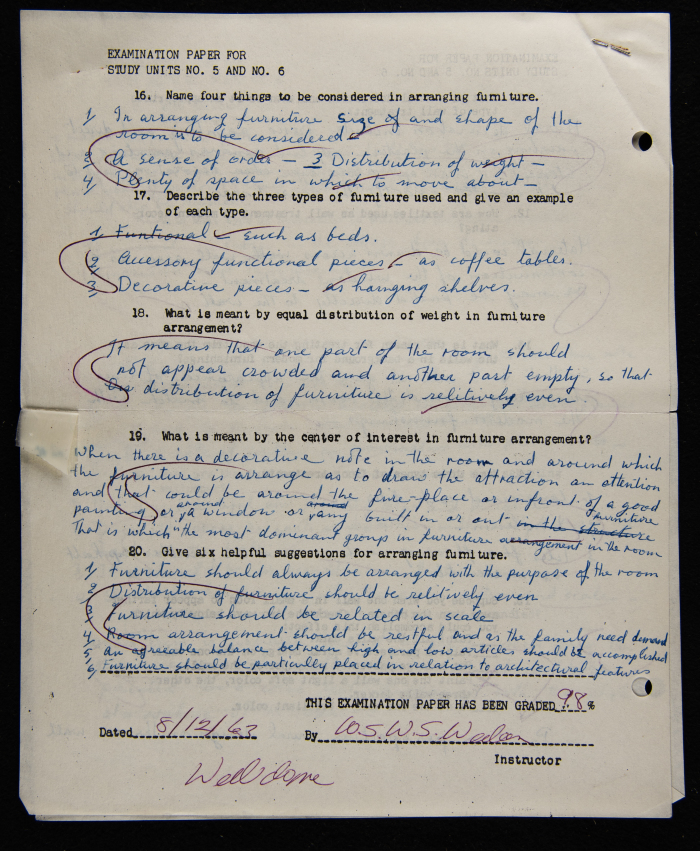 EXAMINATION PAPER FOR
STUDY UNITS NO. 5 AND NO. 6
16. Name four things to be considered in arranging furniture.
1, In arranging furniture size of and shape of the
room is to be considered
2, A sense of order – 3 Distribution of weight –
4, Plenty of space in which to move about –
17. Describe the three types of furniture used and give an example
of each type.
1, Funtional – such as beds.
2, Accessory functional pieces – as coffee tables.
3, Decorative pieces – as hanging shelves.
18. What is meant by equal distribution of weight in furniture
arrangement?
It means that one part of the room should
not appear crowded and another part empty, so that
distribution of furniture is relitively even.
19. What is meant by the center of interest in furniture arrangement?
When there is a decorative note in the room and around which
the furniture is arrange as to draw the attraction an attention
and that could be around the fire-place or infront of a good
painting or around a window or any built in or out in the structure furniture
That is which "the most dominant group in furniture arrangement in the room
20. Give six helpful suggestions for arranging furniture.
1, Furniture should always be arranged with the purpose of the room
2, Distribution of furniture should be relitively even
3, Furniture should be related in scale
4, Room arrangement should be restful and as the family need demand
5, An agreeable balance between high and low articles should be accomplished
6, Furniture should be partically placed in relation to architectural features
THIS EXAMINATION PAPER HAS BEEN GRADED 98 %
Dated 8/12/63 By W.S.
Instructor